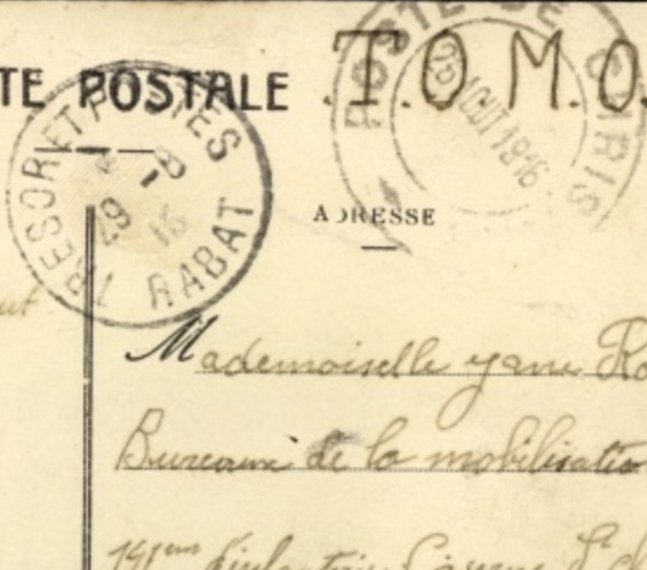 TE POSTALE T.O.M.O.
TRESOR ET POSTES
RABAT
29 8
POSTE DE
26 AOUT 1916
ADRESSE
Mademoiselle
Bureaux de la mobilisation
141eme d'infanterie Caserne